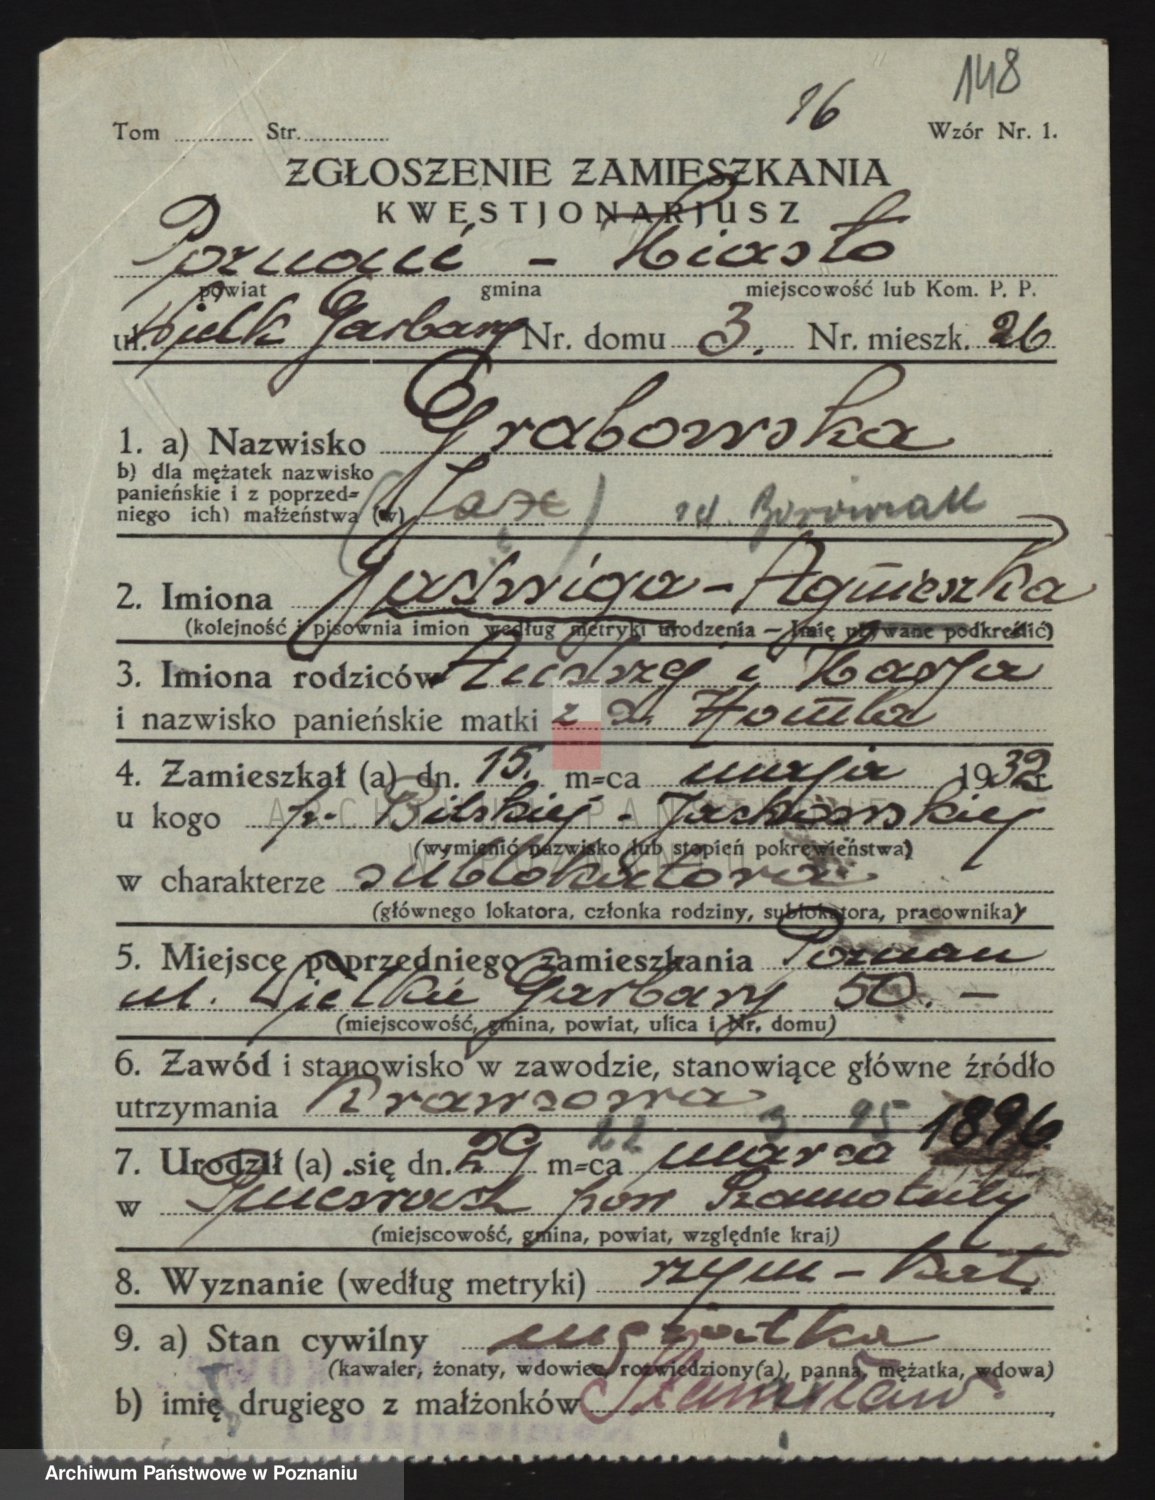 148
16
Tom Str. Wzór Nr. 1.
ZGŁOSZENIE ZAMIESZKANIA
KWESTJONARJUSZ
Poznań - Miasto
powiat gmina miejscowość lub Kom. P. P.
ul. Wielk Garbary Nr. domu 3. Nr. mieszk. 26
1. a) Nazwisko Grabowska
b) dla mężatek nazwisko
panieńskie i z poprzed-
niego ich) małżeństwa (w)
2. Imiona Jadwiga - Agnieszka
(kolejność i pisownia imion według metryki urodzenia — Imię używane podkreślić)
3. Imiona rodziców Andrzej i Marja
i nazwisko panieńskie matki z d.
4. Zamieszkał (a) dn. 15. m=ca maja 1932 r.
u kogo p. Bilskiej - Jachowskiej
(wymienić nazwisko lub stopień pokrewieństwa)
w charakterze sublokatora
(głównego lokatora, członka rodziny, sublokatora, pracownika)
5. Miejsce poprzedniego zamieszkania Poznań
ul. Wielkie Garbary 50. -
(miejscowość, gmina, powiat, ulica i Nr. domu)
6. Zawód i stanowisko w zawodzie, stanowiące główne źródło
utrzymania Krawcowa
22 3 95
7. Urodził (a) się dn. 29 m=ca marca 1896
w pow Szamotuły
(miejscowość, gmina, powiat, względnie kraj)
8. Wyznanie (według metryki) rzym - kat.
9. a) Stan cywilny mężatka
(kawaler, żonaty, wdowiec, rozwiedziony(a), panna, mężatka, wdowa)
b) imię drugiego z małżonków Stanisław
ARCHIWUM PAŃSTWOWE
W POZNANIU
Archiwum Państwowe w Poznaniu